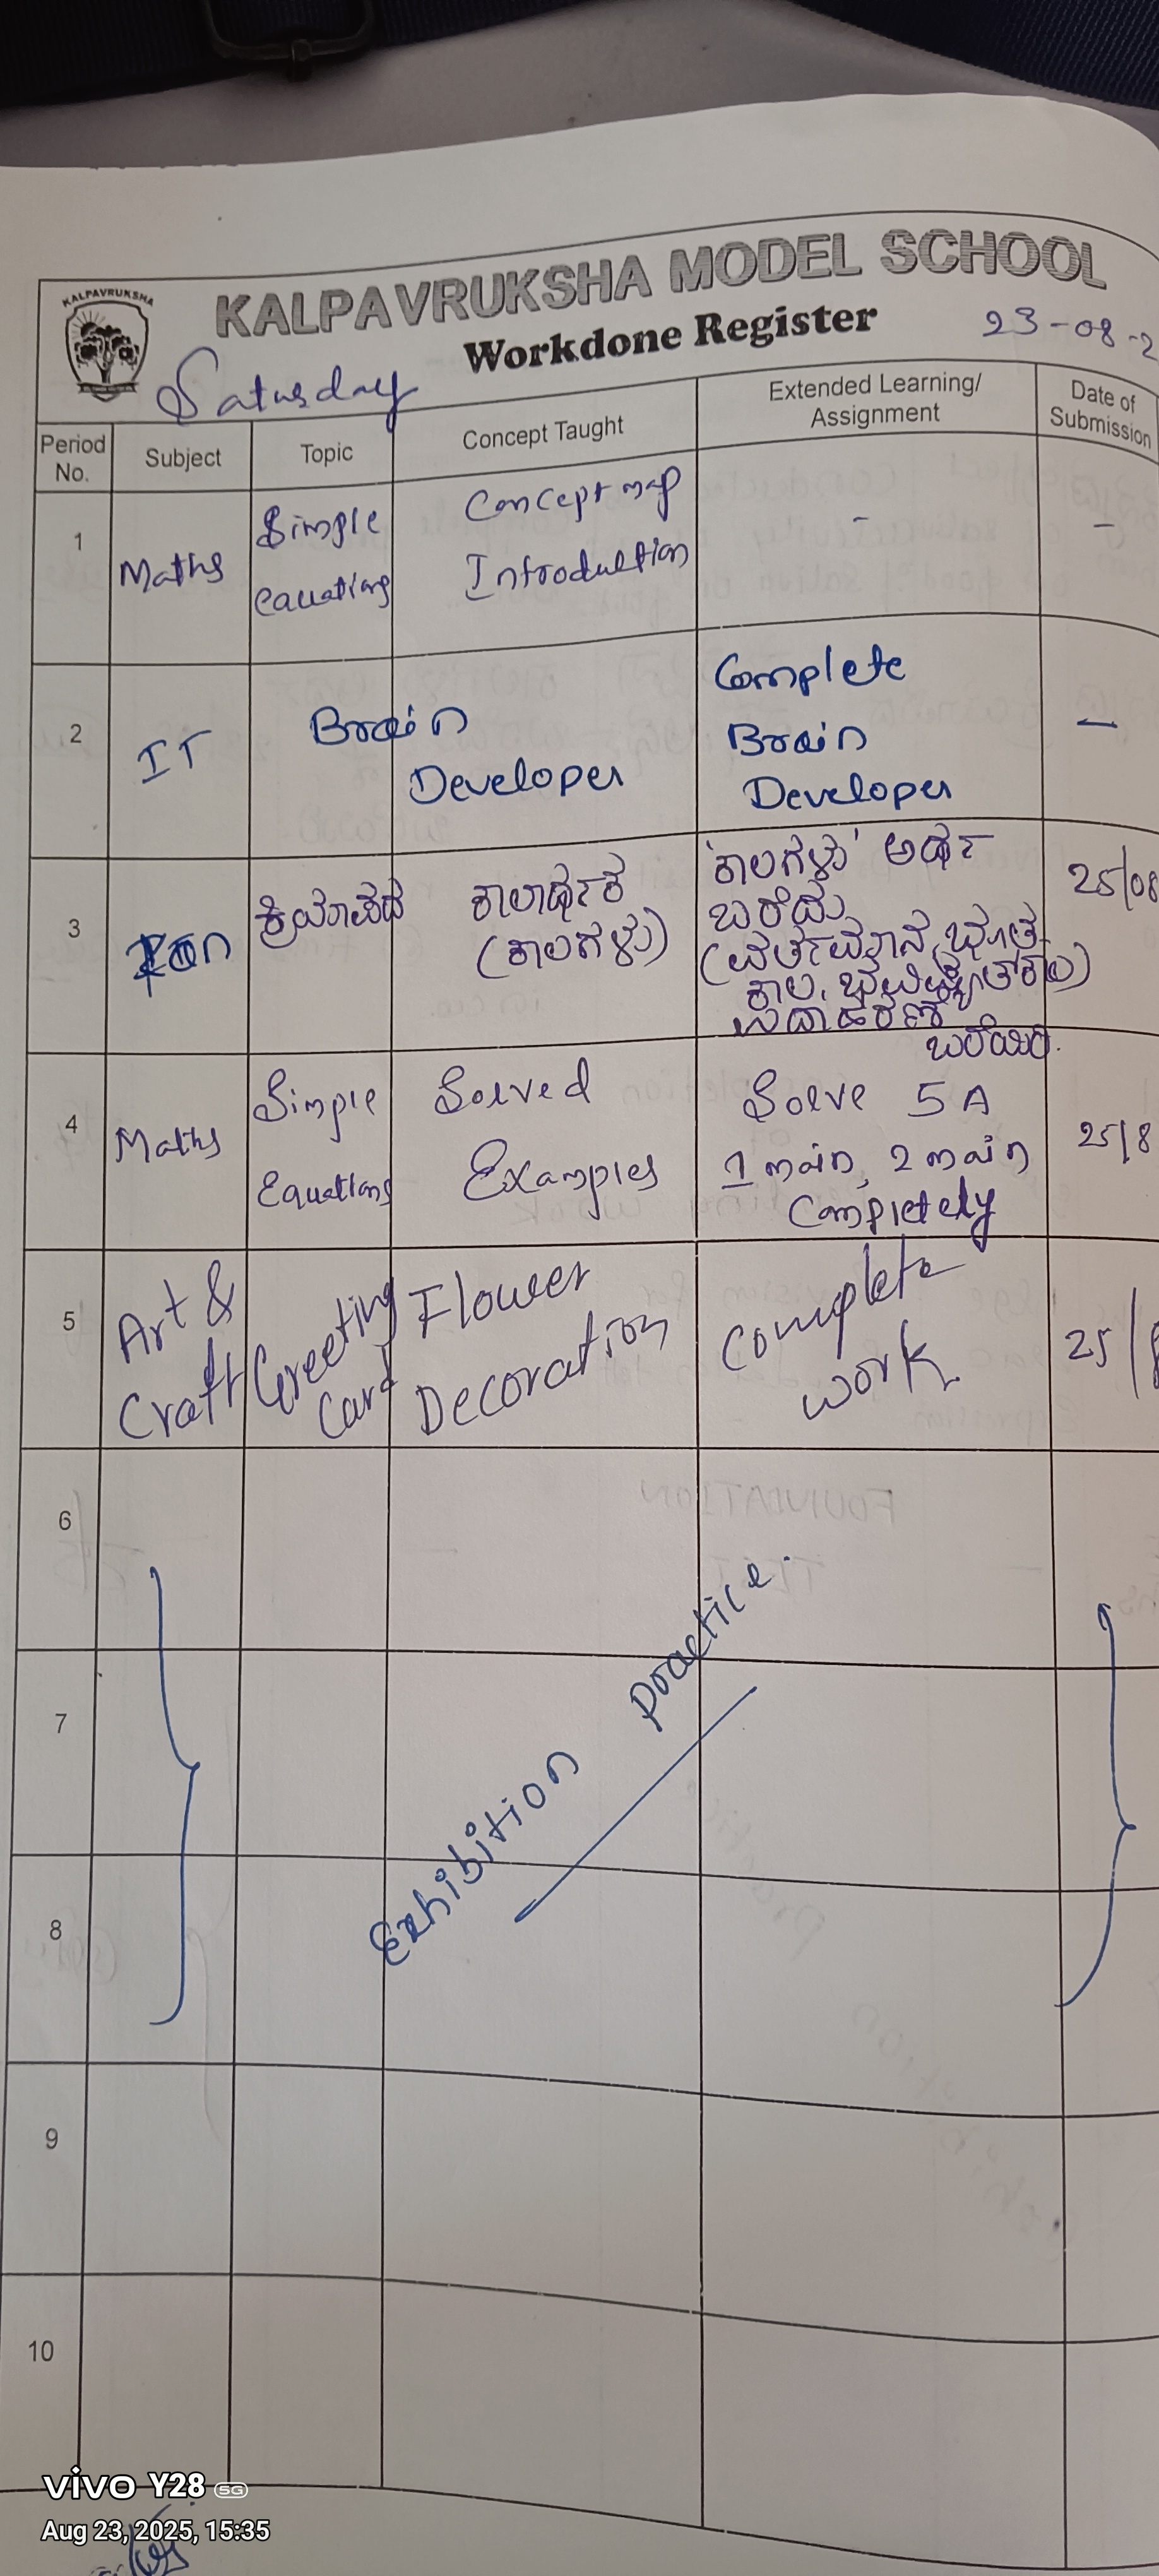 KALPAVRUKSHA
KALPAVRUKSHA MODEL SCHOOL
Workdone Register
23-08-2
Saturday
Period No.
Subject
Topic
Concept Taught
Extended Learning/ Assignment
Date of Submission
1
Maths
Simple
equations
Concept map
Introduction
-
-
2
IT
Brain
Developer
Complete
Brain
Developer
-
3
ಕ್ರಿಯಾಪದ
ಕಾಲಾರ್ಥಕ
(ಕಾಲಗಳು)
'ಕಾಲಗಳು' ಅರ್ಥ
ಬರೆದು
(ವರ್ತಮಾನ, ಭೂತ
ಕಾಲ, ಭವಿಷ್ಯತ್‌ಕಾಲ)
ಉದಾಹರಣೆ
ಬರೆಯಿರಿ.
25/08
4
Maths
Simple
Equations
Solved
Examples
Solve 5A
1 main, 2 main
Completely
25/8
5
Art &
Craft
Greeting
Card
Flower
Decoration
Complete
work
25/8
6
7
8
Exhibition Practice.
9
10
vivo Y28 5G
Aug 23, 2025, 15:35